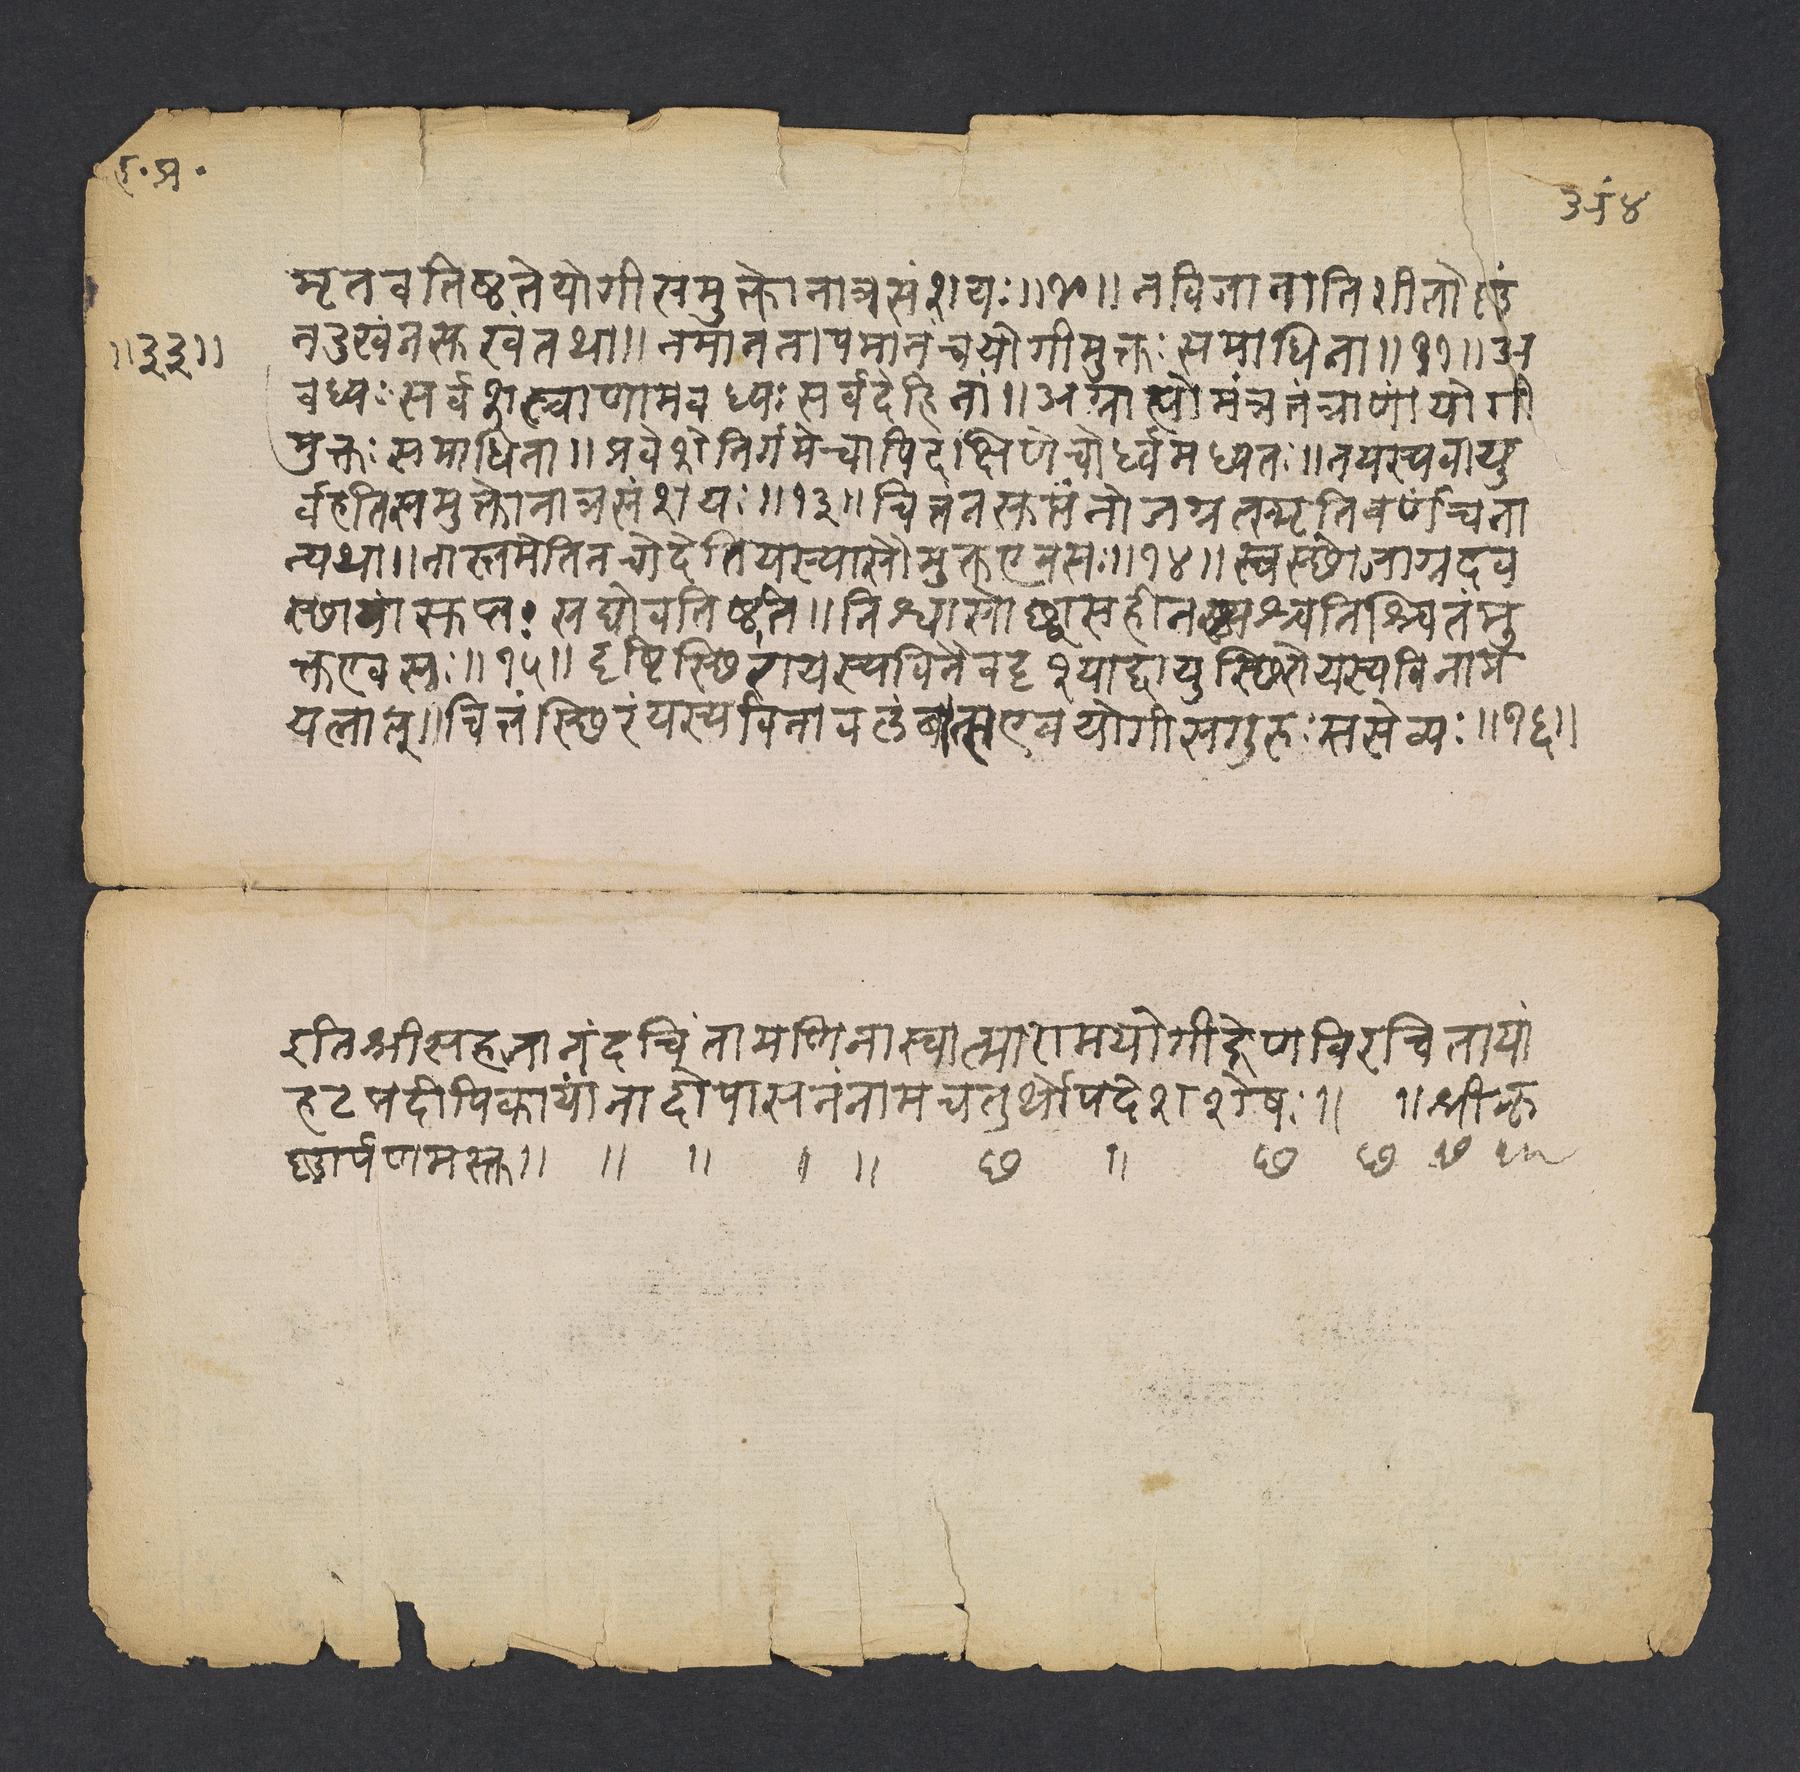 उं ४
मृतवतिष्ठतेयोगीसमुक्तोनात्रसंशयः॥१०॥नविजानातिशीतोष्णं
॥३३॥
नदुखंनसुखंतथा॥नमानंनापमानंचयोगीमुक्तःसमाधिना॥११॥अ
वध्यःसर्वशस्त्राणामवध्यःसर्वदेहिनां॥अग्राह्योमंत्रतंत्राणांयोगी
मुक्तःसमाधिना॥प्रवेशेनिर्गमेचापिदक्षिणेचोर्ध्वमध्यतः॥नयस्यवायु
र्वहतिसमुक्तोनात्रसंशयः॥१३॥चित्तंनसुप्तंनोजाग्रत्स्मृतिवर्णंचना
न्यथा॥नास्तमेतिनचोदेतियस्यासौमुक्तएवसः॥१४॥स्वस्छोजाग्रदव
स्छायांसुप्तः सद्योवतिष्ठति॥निश्वासोछ्वासहीनश्चनिश्चितंमु
क्तएवसः॥१५॥दृष्टिस्छिरायस्यविनैवदृश्याद्वायुस्छिरोयस्यविनाप्र
यत्नात्॥चित्तंस्छिरंयस्यविनावलंबात्सएवयोगीसगुरुःससेव्यः॥१६॥
इतिश्रीसहजानंदचिंतामणिनास्वात्मारामयोगींद्रेणविरचितायां
हटप्रदीपिकायांनादोपासनंनामचतुर्थोपदेशशेषः॥ ॥श्रीकृ
ष्णार्पणमस्तु॥ ॥ ॥ ॥ ॥ छ ॥ छ छ छ